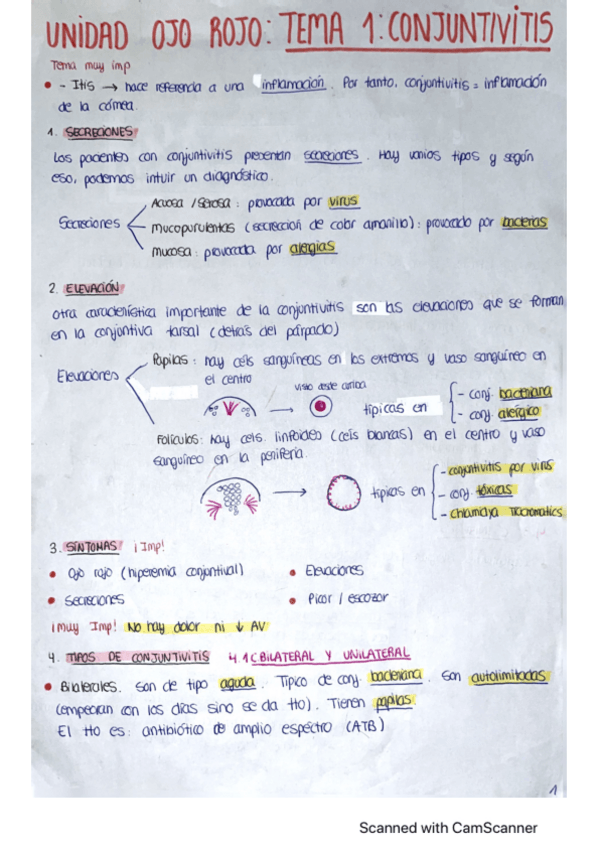 UNIDAD OJO ROJO: TEMA 1: CONJUNTIVITIS
Tema muy imp
- Itis → hace referencia a una inflamación. Por tanto, conjuntivitis = inflamación
de la córnea.
1. SECRECIONES
Los pacientes con conjuntivitis presentan secreciones. Hay varios tipos y según
eso, podemos intuir un diagnóstico.
Acuosa / serosa : provocada por virus
Secreciones
Mucopurulentas (secreción de color amarillo) : provocado por bacterias
mucosa : provocada por alergias
2. ELEVACIÓN
Otra característica importante de la conjuntivitis son las elevaciones que se forman
en la conjuntiva tarsal (detrás del párpado)
Elevaciones
Papilas : hay cels sanguíneas en los extremos y vaso sanguíneo en
el centro
visto desde arriba
típicas en
- conj. bacteriana
- conj. alérgico
Folículos : hay cels. linfoides (cels blancas) en el centro y vaso
sanguíneo en la periferia.
típicas en
- conjuntivitis por virus
- conj. tóxicas
- chlamdya Tracromatics
3. SÍNTOMAS ¡Imp!
Ojo rojo (hiperemia conjuntival)
Elevaciones
Secreciones
Picor / escozor
¡Muy Imp! No hay dolor ni ↓ AV
4. TIPOS DE CONJUNTIVITIS 4.1 BILATERAL Y UNILATERAL
Bilaterales. Son de tipo aguda. Típico de conj. bacteriana. Son autolimitadas
(empeoran con los días sino se da tto). Tienen papilas.
El tto es : antibiótico de amplio espectro (ATB)
1
Scanned with CamScanner